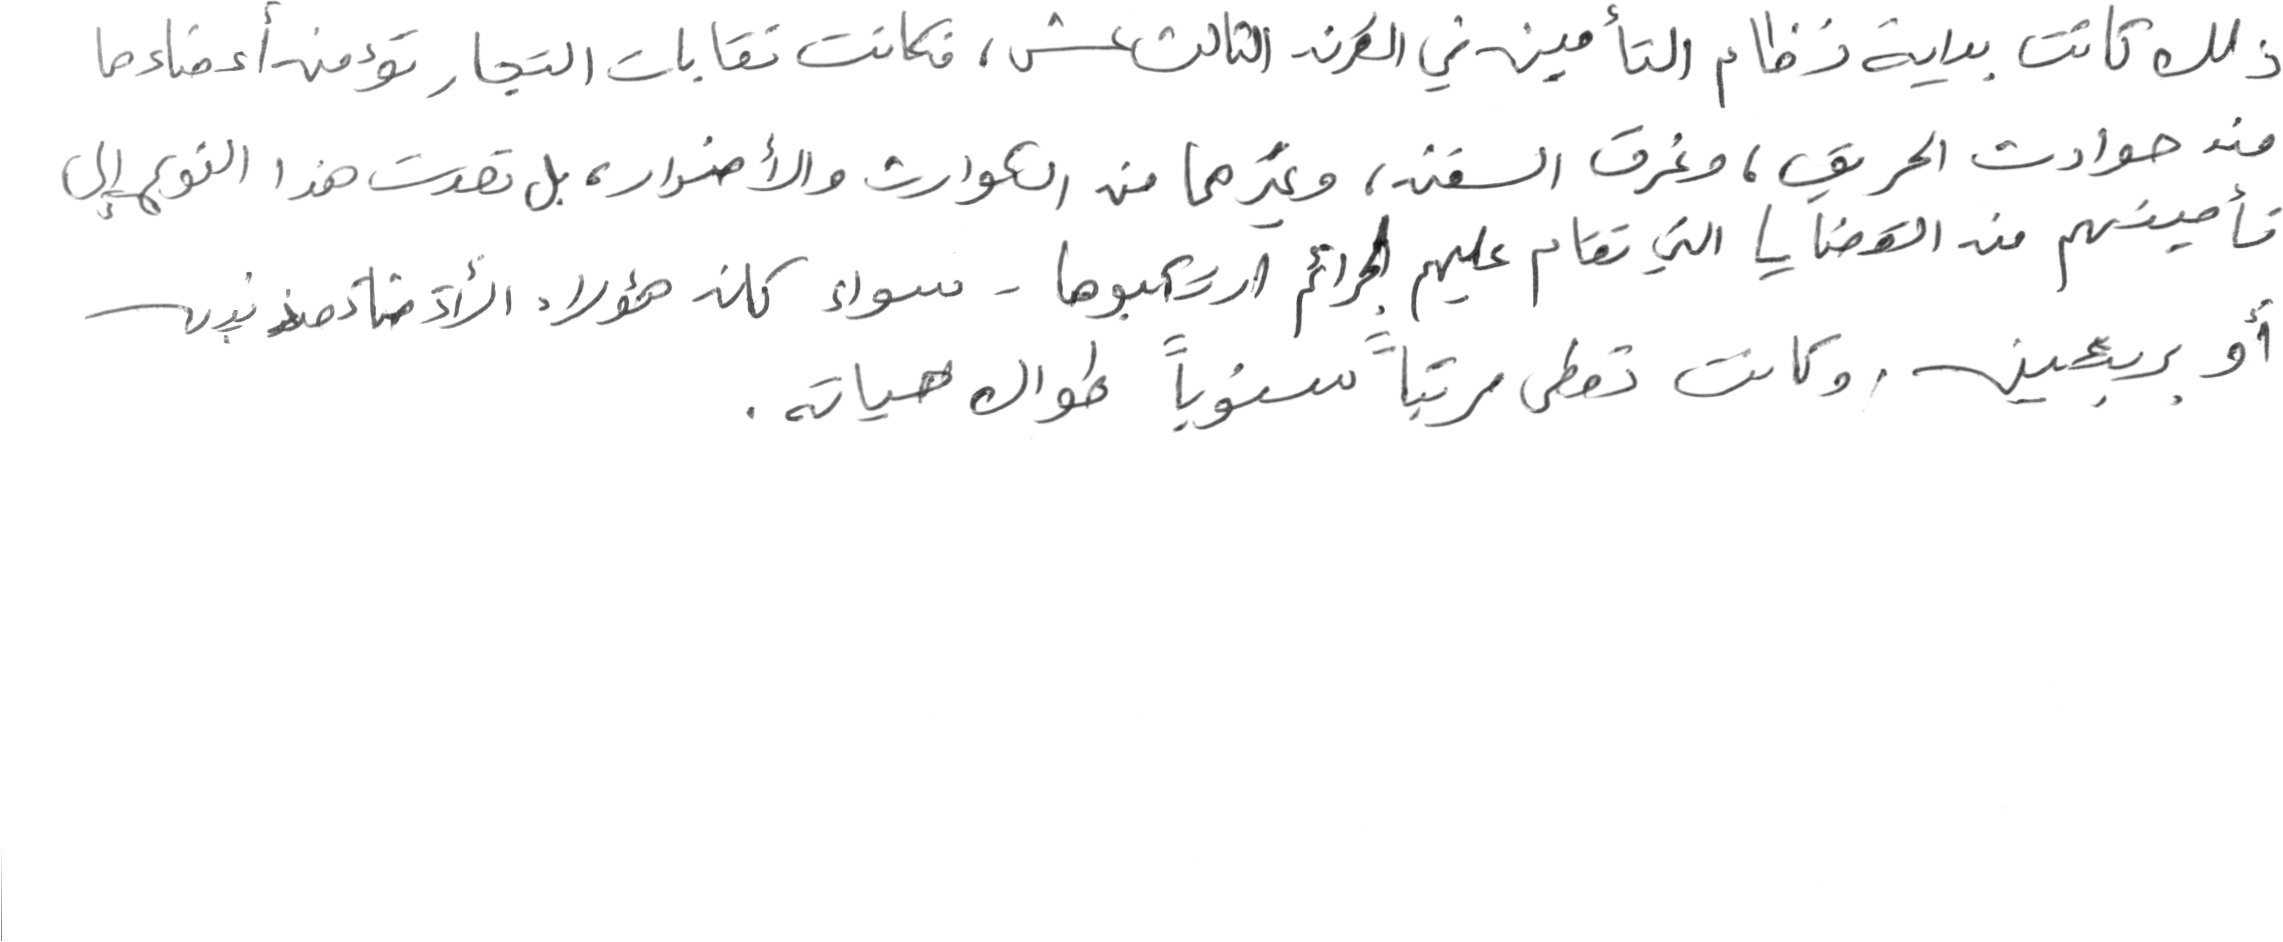 ذلك كانت بداية نظام التأمين في القرن الثالث عشر، فكانت نقابات التجار تؤمن أعضاءها
من حوادث الحريق، وغرق السفن، وغيرهما من الكوارث والأضرار، بل تعدت هذا النوع إلى
تأمينهم من القضايا التي تقام عليهم لجرائم ارتكبوها - سواء كان هؤلاء الأعضاء مذنبين
أو بريئين. وكانت تعطى مرتباً سنوياً طوال حياته.